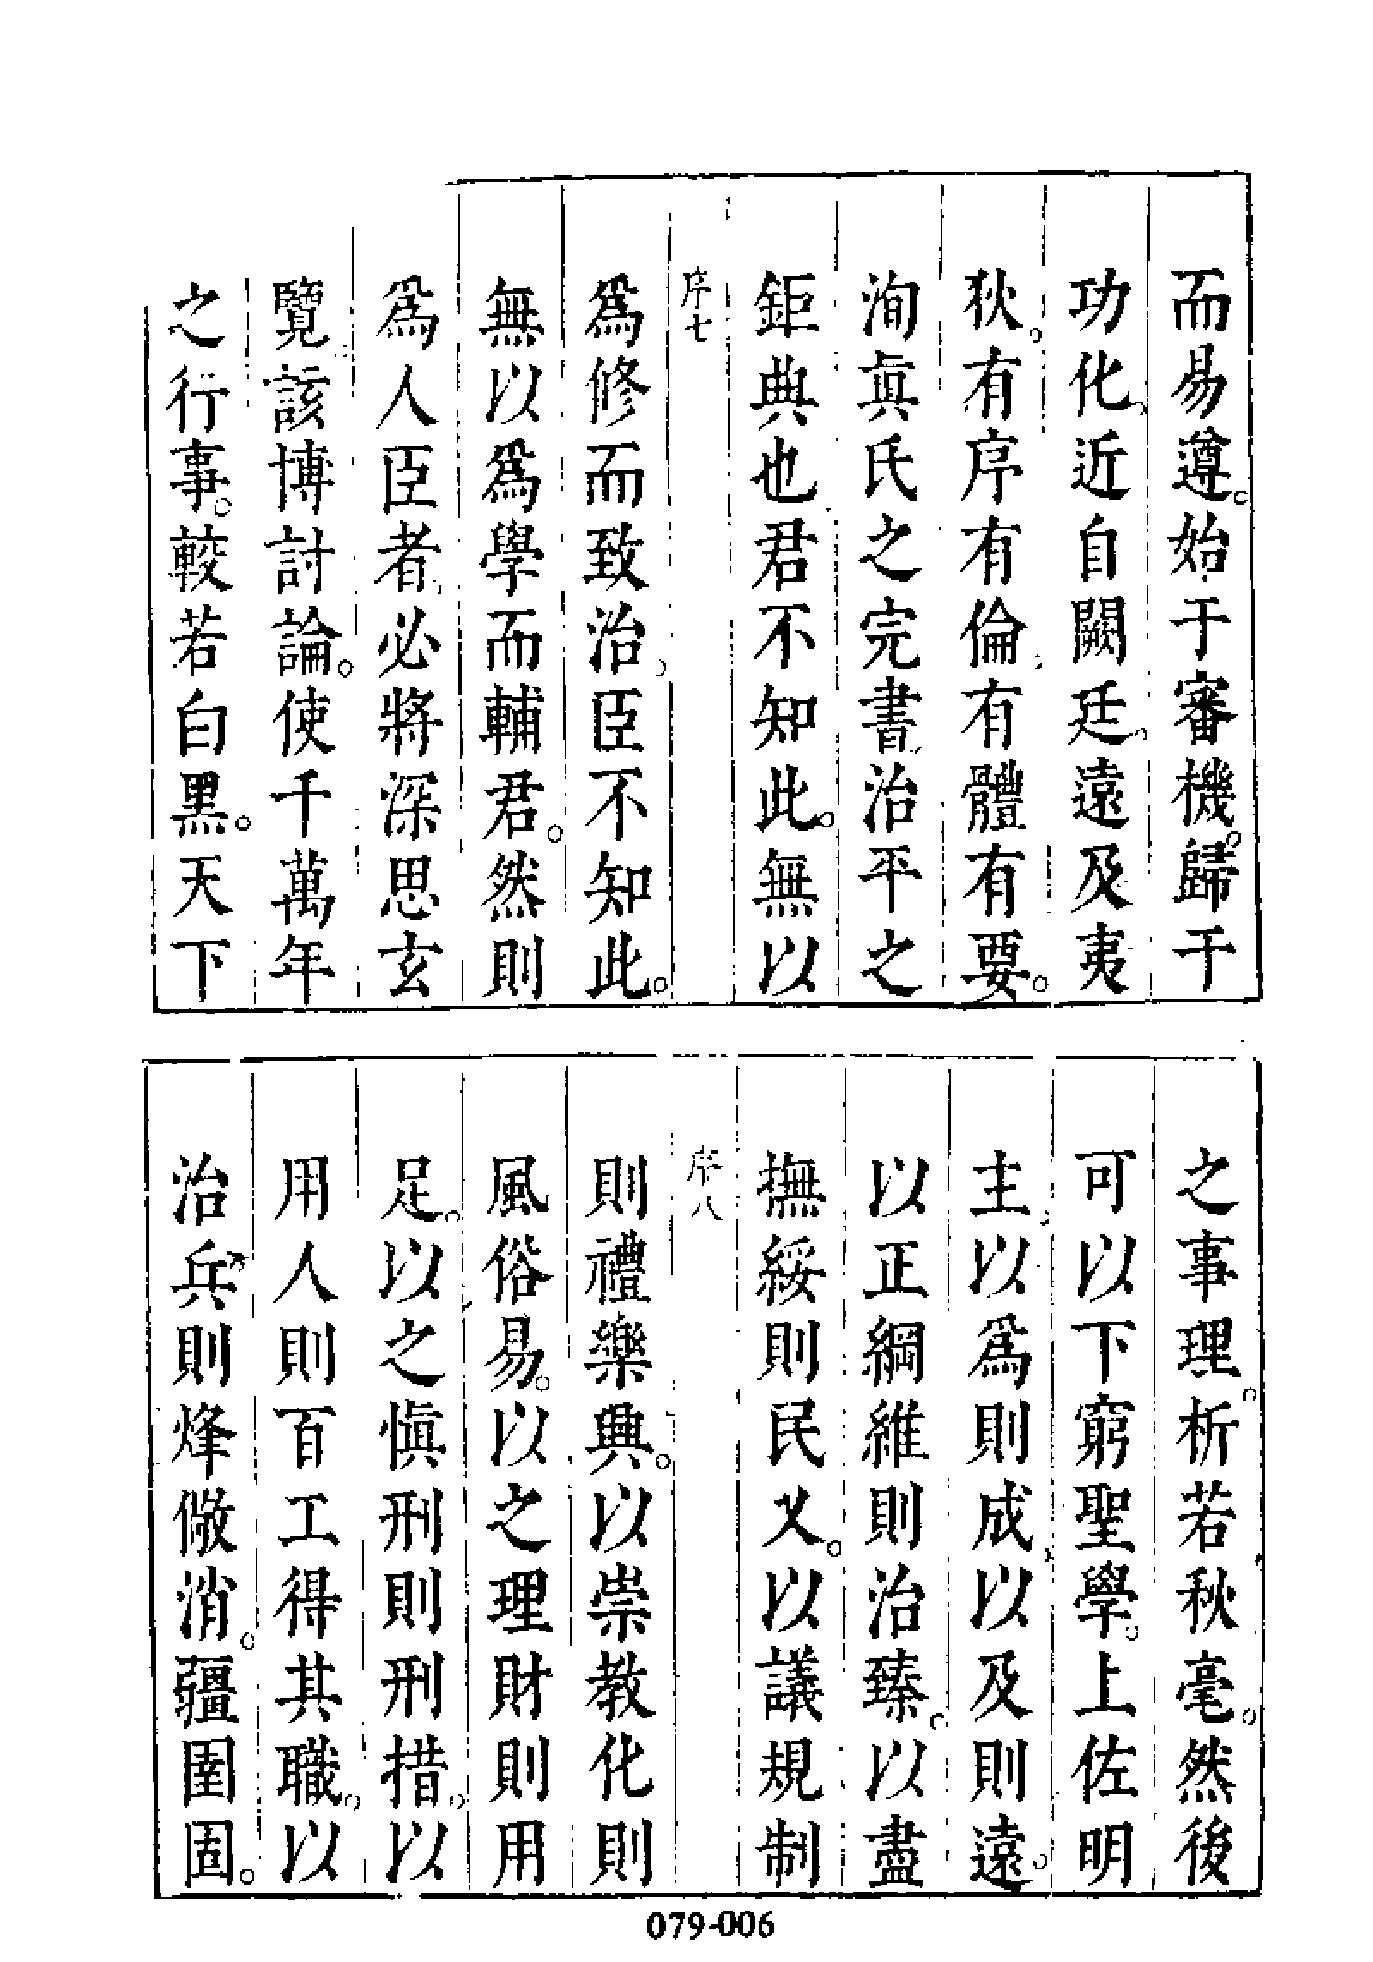 而易遵。始于審機。歸于
功化。近自闕廷。遠及夷
狄。有序有倫。有體有要。
洵眞氏之完書。治平之
鉅典也君不知此。無以
序七
爲修而致治。臣不知此。
無以爲學而輔君。然則
爲人臣者。必將深思玄
覽該博討論。使千萬年
之行事。較若白黑。天下
之事理。析若秋毫。然後
可以下窮聖學。上佐明
主。以爲則成。以及則遠。
以正綱維則治臻。以盡
撫綏則民乂。以議規制
序八
則禮樂興。以崇教化則
風俗易。以之理財則用
足。以之愼刑則刑措。以
用人則百工得其職。以
治兵則烽儆消。疆圉固。
079-006